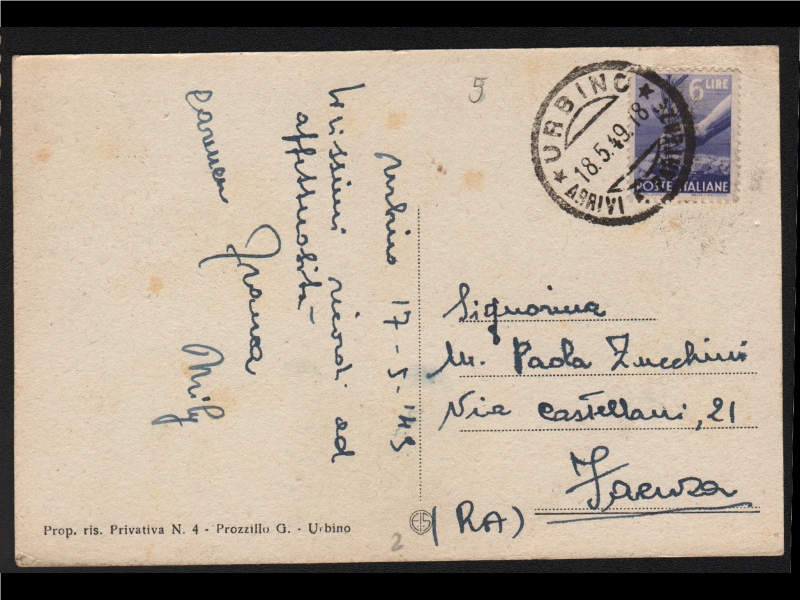 Urbino 17-5-'49
ricordi ed
affettuosità
Carmen
Franca
Mily
5
6 LIRE
POSTE ITALIANE
URBINO
18.5.49.18
ARRIVI
Signorina
M. Paola Zucchini
Via Castellani, 21
Faenza
(RA)
Prop. ris. Privativa N. 4 - Prozzillo G. - Urbino
2